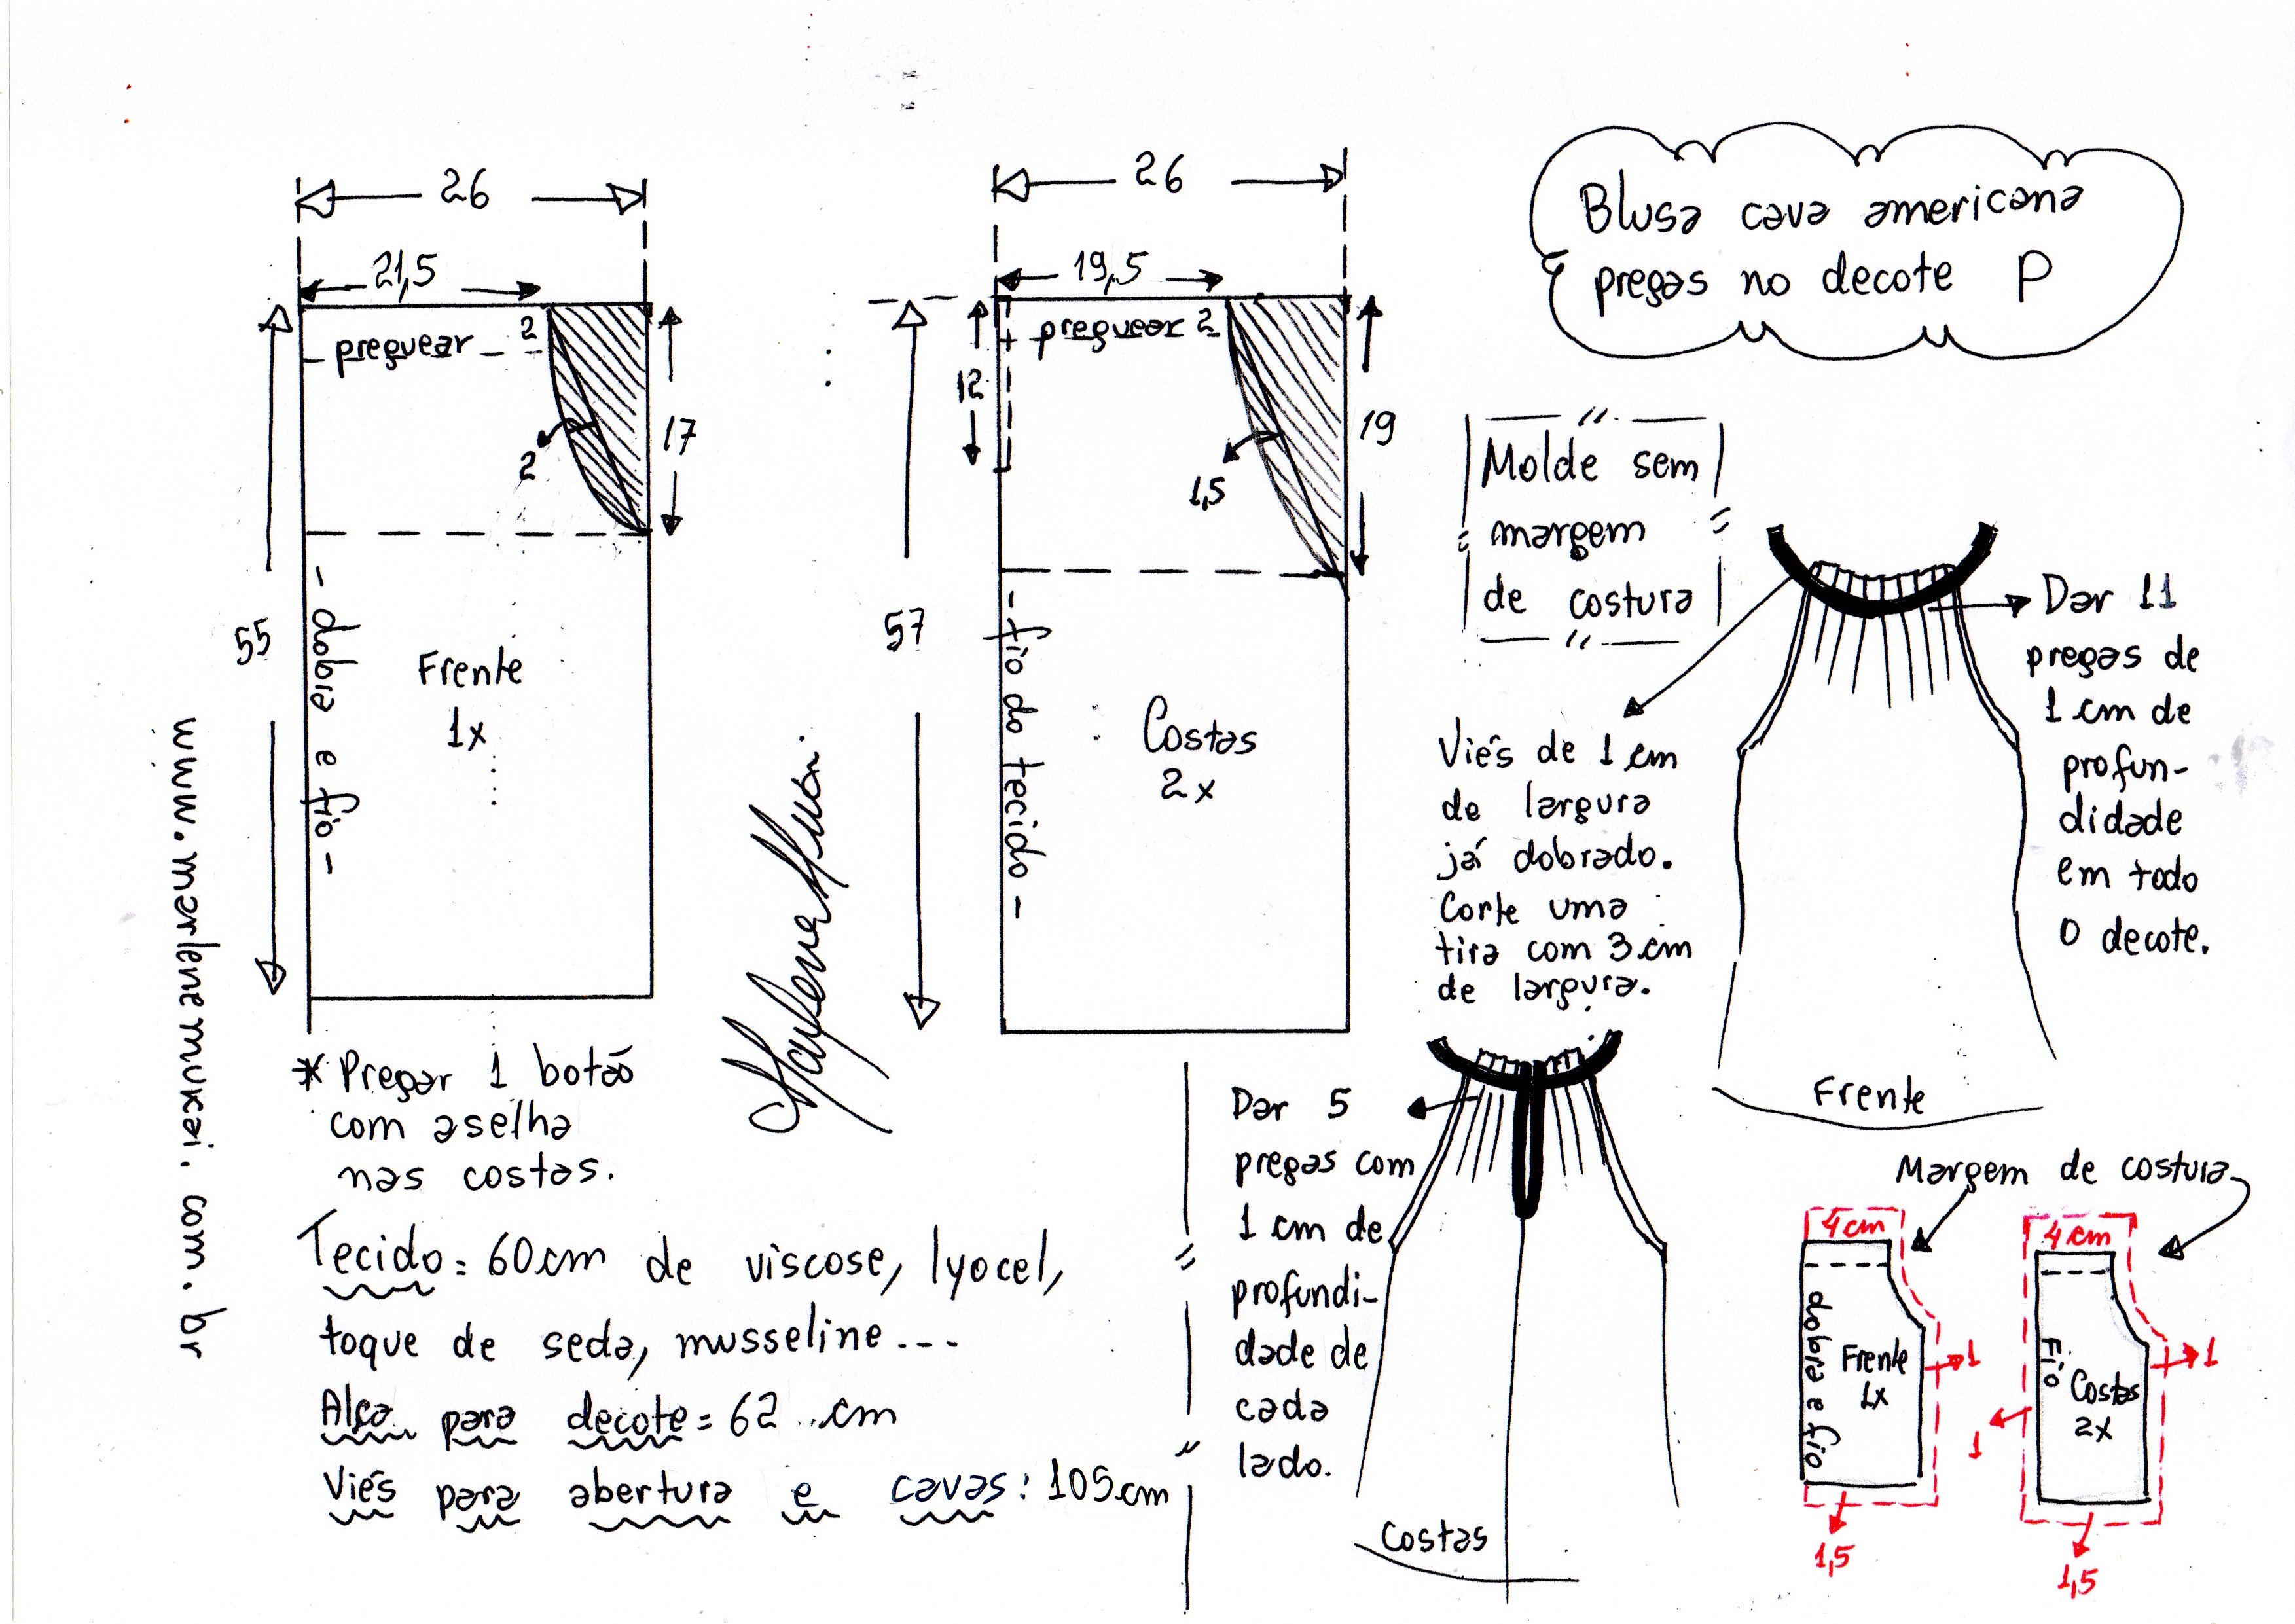 Blusa cava americana
pregas no decote P
26
21,5
preguear 2
2
17
55
- dobra e fio -
Frente
1x
26
19,5
preguear 2
12
1,5
19
57
- fio do tecido -
Costas
2x
"
Molde sem
margem
de costura
"
Dar 11
pregas de
1 cm de
profun-
didade
em todo
o decote.
Viés de 1 cm
de largura
já dobrado.
Corte uma
tira com 3 cm
de largura.
Frente
www.marlenemukai.com.br
* Pregar 1 botão
com aselha
nas costas.
Tecido = 60 cm de viscose, lyocel,
toque de seda, musseline...
Alça para decote = 62 cm
Viés para abertura e cavas: 105 cm
Dar 5
pregas com
1 cm de
profundi-
dade de
cada
lado.
Costas
Margem de costura
4 cm
dobra e fio
Frente
1x
1
1,5
4 cm
Fio
Costas
2x
1
1
1,5